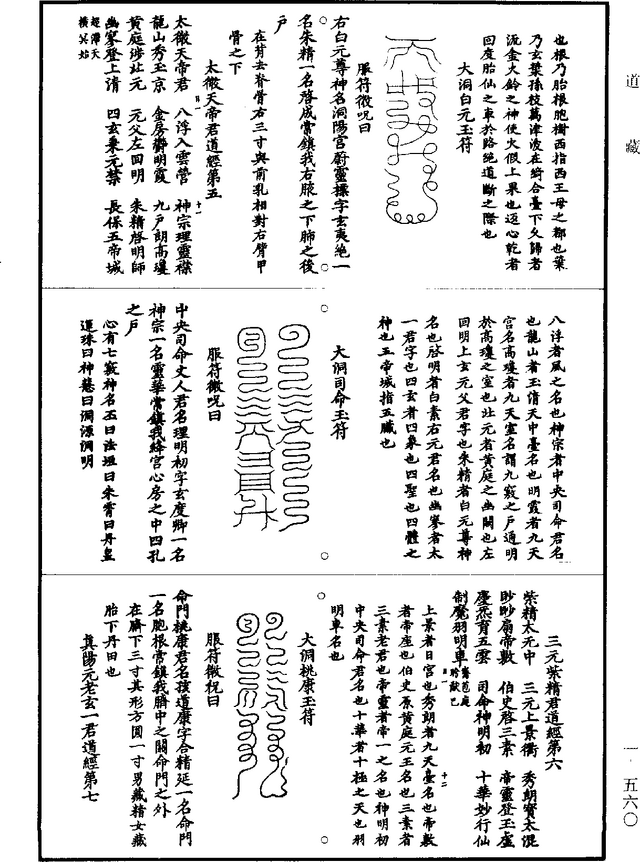 道藏
也根乃胎根胞樹西指西王母之都也葉
乃玄葉孫枝萬津波在綺合臺下久歸者
流金火鈴之神使火假上果也迈心乾者
回度胎仙之車於路絕道斷之際也
大洞白元玉符
服符微呪曰
右白元尊神名洞陽宮蔚靈標字玄夷絕一
名朱精一名啓成常鎮我右腋之下肺之後
戶
在背去脊骨右三寸與前乳相對右臂甲
骨之下
太微天帝君道經第五
太微天帝君 八浮入雲營 神宗理靈襟
龍山秀玉京 金房鬱明霞 九戶朗高瓊
黃庭涉北元 元父左回明 朱精啓明師
幽寥登上清 四玄乘元禁 長保五帝城
八浮者風之名也神宗者中央司命君名
也龍山者玉清天中臺名也明霞者九天
宮名高瓊者九天臺名謂九竅之戶通明
於高瓊之室也北元者黃庭之幽關也左
回明上玄元父君字也朱精者白元尊神
名也啓明者白素右元君名也幽寥者太
一君字也四玄者四象也四聖也四體之
神也五帝城指五臟也
大洞司命玉符
服符微呪曰
中央司命丈人君名理明初字玄度卿一名
神宗一名靈華常鎮我絳宮心房之中四孔
之戶
心有七竅神名五曰法坦曰朱霄曰丹皇
蓮珠曰神慧曰洞源洞明
三元紫精君道經第六
紫精太元中 三元上景衢 秀朗寶太混
眇眇扇帝數 伯史啓三素 帝靈登玉虛
慶炁育五雲 司命神明初 十華妙行仙
制魔羽明車
上景者日宮也秀朗者九天臺名也帝數
者帝座也伯史原黃庭元王名也三素者
三素老君也帝靈者帝一之名也神明初
中央司命君名也十華者十極之天也羽
明車名也
大洞桃康玉符
服符微祝曰
命門桃康君名孩道康字合精延一名命門
一名胞根常鎮我臍中之關命門之外
在臍下三寸其形方圓一寸男藏精女藏
胎下丹田也
真陽元老玄一君道經第七
一·五六〇